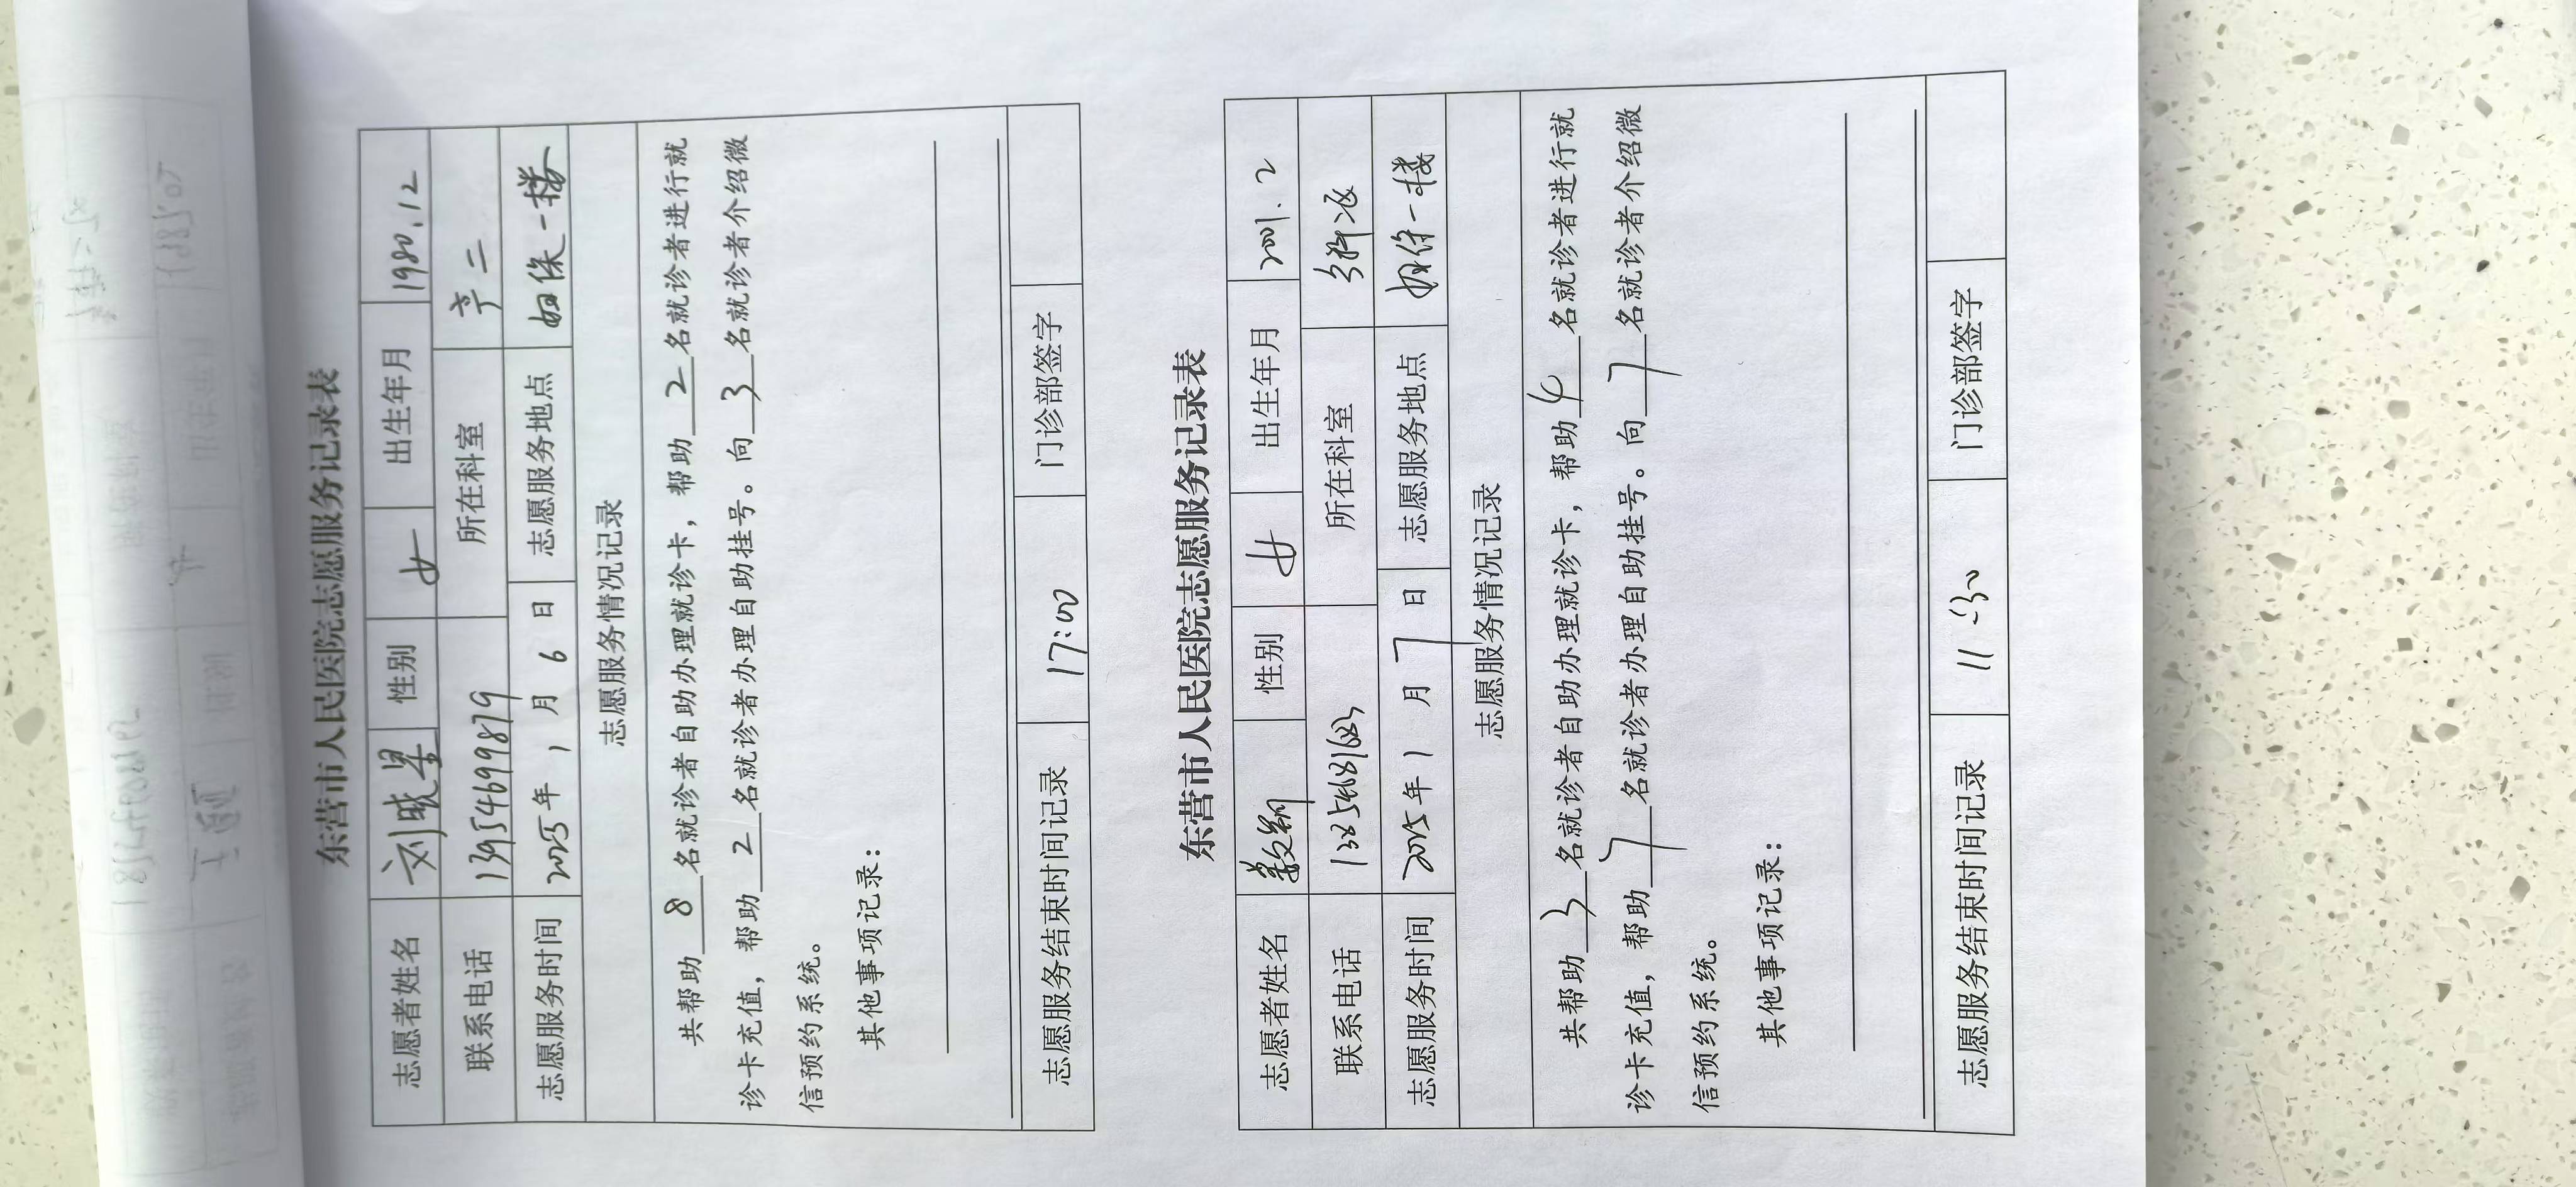 东营市人民医院志愿服务记录表
志愿者姓名 刘晓星 性别 女 出生年月 1980.12
联系电话 13954699879 所在科室 产二
志愿服务时间 2025年 1 月 6 日 志愿服务地点 妇保一楼
志愿服务情况记录
共帮助 8 名就诊者自助办理就诊卡，帮助 2 名就诊者进行就
诊卡充值，帮助 2 名就诊者办理自助挂号。向 3 名就诊者介绍微
信预约系统。
其他事项记录：
志愿服务结束时间记录 17:00 门诊部签字
东营市人民医院志愿服务记录表
志愿者姓名 性别 女 出生年月 2001.2
联系电话 所在科室
志愿服务时间 2025年 1 月 7 日 志愿服务地点 妇保一楼
志愿服务情况记录
共帮助 3 名就诊者自助办理就诊卡，帮助 4 名就诊者进行就
诊卡充值，帮助 7 名就诊者办理自助挂号。向 7 名就诊者介绍微
信预约系统。
其他事项记录：
志愿服务结束时间记录 11:30 门诊部签字